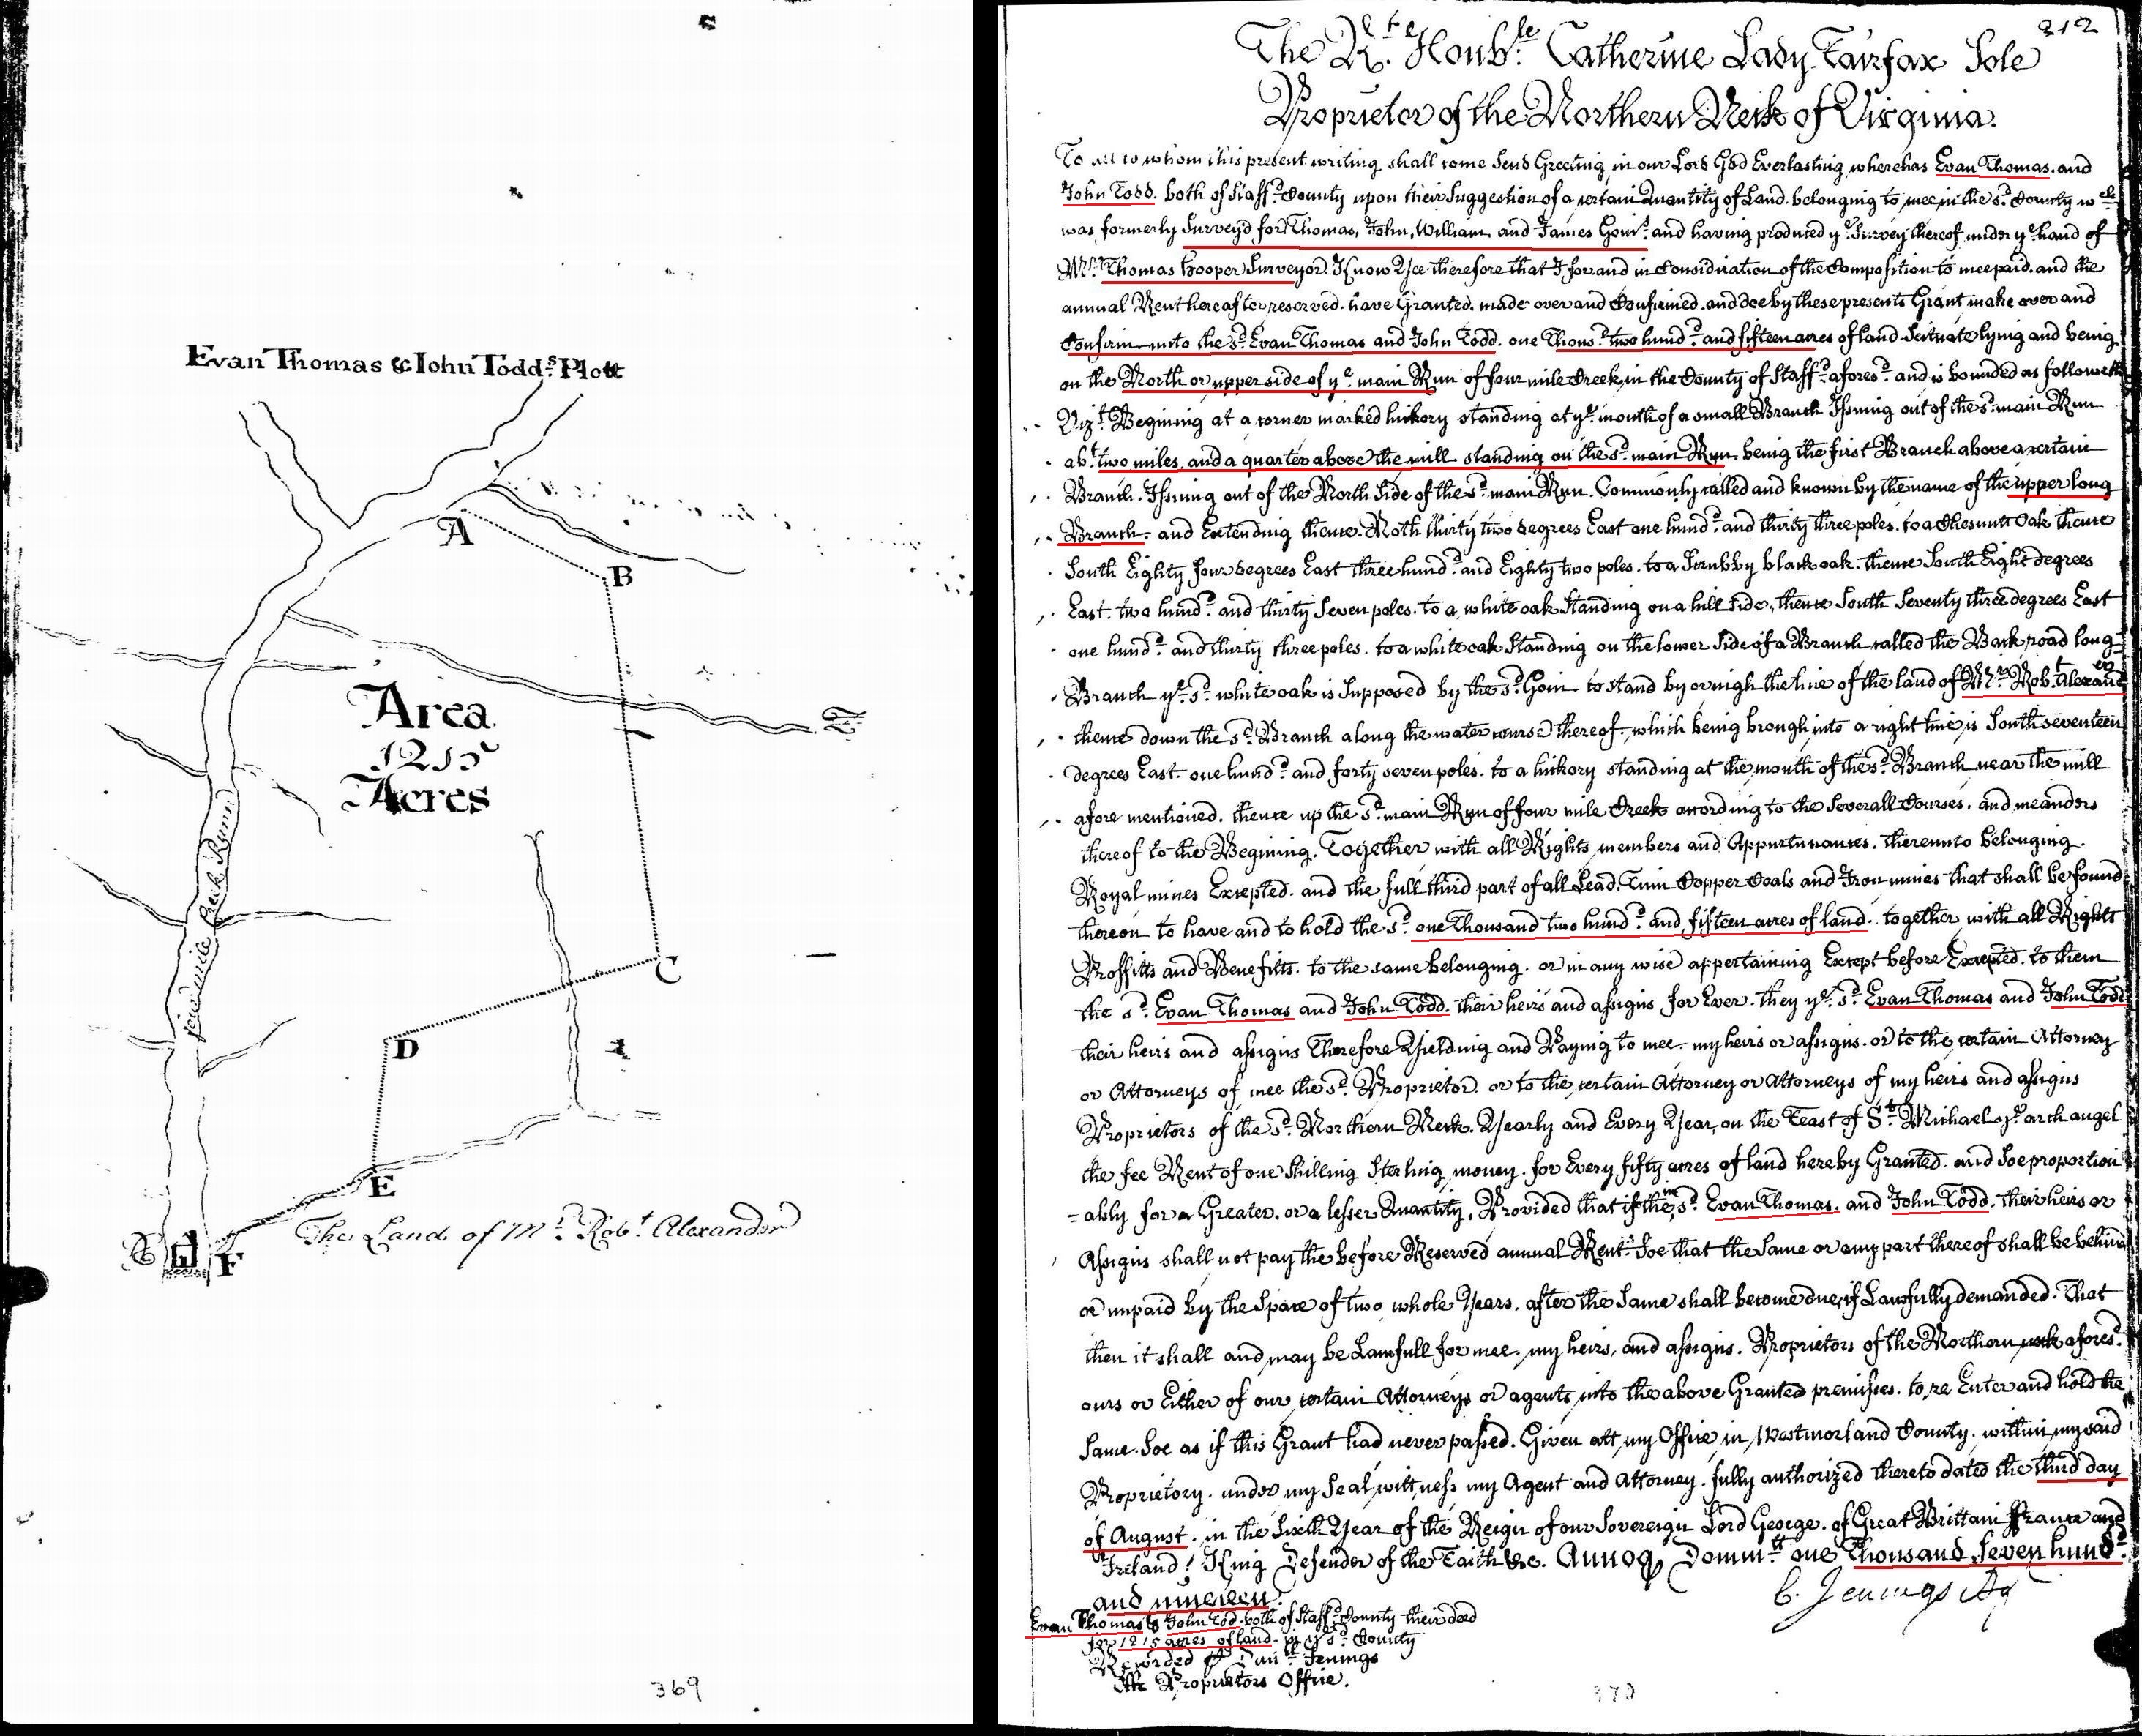 Evan Thomas & Iohn Todds. Plott
A
B
Area
1215
Acres
fourmile Creek Runn
C
D
E
The Land of Mr. Robt. Alexander
F
369
212
The Rt. Honble. Catherine Lady Fairfax Sole
Proprietor of the Northern Neck of Virginia.
To all to whom this present writing shall come Send Greeting in our Lord God Everlasting wherehas Evan Thomas. and
John Todd. both of Staffd. County upon their Suggestion of a certain Quantity of Land. belonging to mee in the sd. County wch
was formerly Surveyd for Thomas, John, William and James Goins. and having produced ye. Survey thereof under ye. hand of
Mr. Thomas Hooper Surveyor. Know Yee therefore that I for and in Consideration of the Composition to mee paid. and the
annual Rent hereafter reserved. have Granted. made over and Confirmed. and doe by these presents Grant make over and
Confirm unto the sd. Evan Thomas and John Todd. one Thousd. two hundd. and fifteen acres of land Scituate lying and being
on the North or upper side of ye. main Run of four mile Creek, in the County of Staffd. aforesd. and is bounded as followeth
Vizt. Begining at a corner marked hickory standing at ye. mouth of a small Branch Issuing out of the sd. main Run
abt. two miles, and a quarter above the mill standing on the sd. main Run. being the first Branch above a certain
Branch. Issuing out of the North Side of the sd. main Run. Commonly called and known by the name of the upper long
Branch. and Extending thence. Noth thirty two degrees East one hundd. and thirty three poles. to a Chesnutt Oak thence
South Eighty four degrees East three hundd. and Eighty two poles. to a Scrubby black oak. thence South Eight degrees
East. two hundd. and thirty Seven poles. to a white oak Standing on a hill Side, thence South Seventy three degrees East
one hundd. and thirty three poles. to a white oak Standing on the lower Side of a Branch called the Back road long
Branch ye. sd. white oak is Supposed by the sd. Goin to stand by or nigh the line of the land of Mr. Robt. Alexander
thence down the sd. Branch along the water course thereof. which being brough into a right line is South seventeen
degrees East. one hundd. and forty seven poles. to a hickory standing at the mouth of the sd. Branch near the mill
afore mentioned. thence up the sd. main Run of four mile Creek according to the Severall Courses. and meanders
thereof to the Begining. Together with all Rights members and Appurtunances. thereunto belonging.
Royal mines Excepted. and the full third part of all Lead, Tinn Copper Coals and Iron mines that shall be found
thereon to have and to hold the sd. one Thousand two hundd. and fifteen acres of land. together with all Rights
Proffitts and Benefitts. to the same belonging. or in any wise appertaining Except before Excepted. to them
the sd. Evan Thomas and John Todd. their heirs and assigns for Ever. they ye. sd. Evan Thomas and John Todd
their heirs and assigns Therefore Yielding and Paying to mee. my heirs or assigns. or to the certain Attorney
or Attorneys of mee the sd. Proprietor. or to the certain Attorney or Attorneys of my heirs and assigns
Proprietors of the sd. Northern Neck. Yearly and Every Year, on the Feast of St. Michael ye. arch angel
the fee Rent of one Shilling Sterling money. for Every fifty acres of land hereby Granted. and Soe proportion
-ably for a Greater. or a lesser Quantity. Provided that if the sd. Evan Thomas. and John Todd. their heirs or
Assigns shall not pay the before Reserved annual Rent. Soe that the Same or any part thereof shall be behind
or unpaid by the Space of two whole Years. after the Same shall become due, if Lawfully demanded. That
then it shall and may be Lawfull for mee. my heirs, and assigns. Proprietors of the Northern neck aforesd.
ours or Either of our certain Attorneys or agents into the above Granted premisses. to re Enter and hold the
Same. Soe as if this Grant had never passed. Given att my Office in Westmorland County. within my said
Proprietory. under my Seal, witness my Agent and Attorney. fully authorized thereto dated the third day
of August. in the Sixth Year of the Reign of our Sovereign Lord George. of Great Brittain France and
Ireland, King Defender of the Faith &c. Annoq Domini one Thousand Seven hundd.
and nineteen.
E. Jenings Ag
Evan Thomas & John Tod. both of Staffd. County their deed
for 1215 acres of land in ye sd. County
Recorded Jenings
Proprietors Office.
370